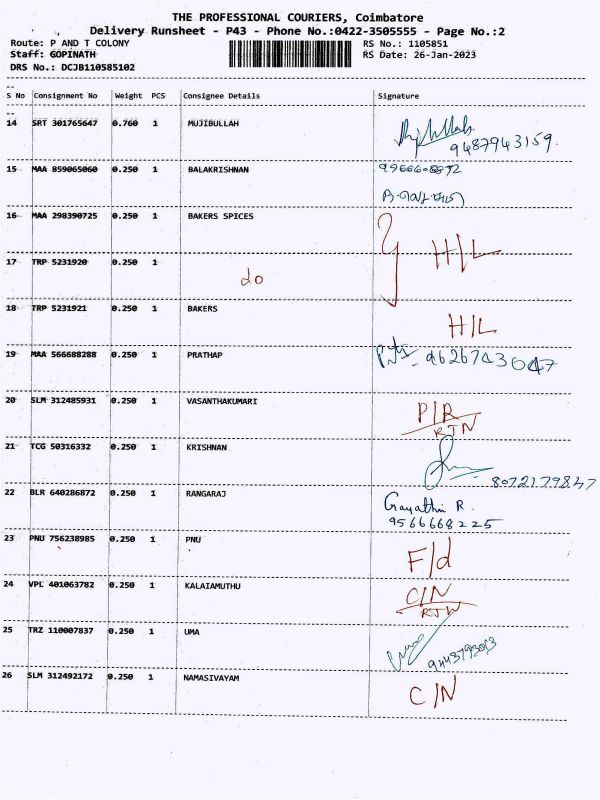 THE PROFESSIONAL COURIERS, Coimbatore
Delivery Runsheet - P43 - Phone No.:0422-3505555 - Page No.:2
Route: P AND T COLONY RS No.: 1105851
Staff: GOPINATH RS Date: 26-Jan-2023
DRS No.: DCJB110585102
S No Consignment No Weight PCS Consignee Details Signature
14 SRT 301765647 0.760 1 MUJIBULLAH
9487943159.
15 MAA 859065060 0.250 1 BALAKRISHNAN
16 MAA 298390725 0.250 1 BAKERS SPICES H/L
17 TRP 5231920 0.250 1 do
18 TRP 5231921 0.250 1 BAKERS H/L
19 MAA 566688288 0.250 1 PRATHAP 9626743047
20 SLM 312485931 0.250 1 VASANTHAKUMARI P/R
RTN
21 TCG 50316332 0.250 1 KRISHNAN 8072179847
22 BLR 640286872 0.250 1 RANGARAJ Gayathri R.
9566668225
23 PNU 756238985 0.250 1 PNU F/d
24 VPL 401063782 0.250 1 KALAIAMUTHU C/N
RTN
25 TRZ 110007837 0.250 1 UMA
26 SLM 312492172 0.250 1 NAMASIVAYAM C/N